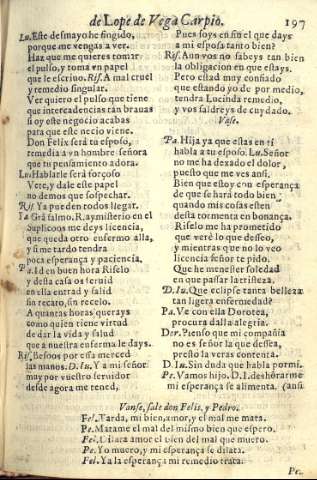 de Lope de Vega Carpio. 197
Lu. Este desmayo he fingido,
porque me vengas a ver.
Haz que me quieres tomar
el pulso, y toma vn papel
que le escriuo. Ris. A mal cruel
y remedio singular.
Ver quiero el pulso que tiene
que intercadencias eràn brauas
si oy este negocio acabas
para que este necio viene.
Don Felix serà tu esposo,
remedia a vn hombre señora
que tu pensamiento adora.
Lu. Hablarle serà forçoso
Vete, y dale este papel
no demos que sospechar.
Ris. Ya pueden todos llegar.
Ia Grã salmo. R. ay misterio en el
Suplicoos me deys licencia,
que queda otro enfermo allà,
y si me tardo tendrà
poca esperança y paciencia.
Pa. Id en buen hora Riselo
y desta casa os seruid
en ella entrad y salid
sin recato, sin recelo.
A quantas horas querays
como quien tiene virtud
de dar la vida y salud
que a nuestra enferma le days.
Ris. Besoos por essa merced
las manos. D. Iu. Y a mi señor
muy por vuestro seruidor
desde agora me tened,
Pues soys en fin el que days
a mi esposa tanto bien?
Ris. Aun vos no sabeys tan bien
la obligacion en que estays.
Pero estad muy confiado
que estando yo de por medio,
tendra Lucinda remedio,
y vos saldreys de cuydado.
Vase.
Pa. Hija ya que estas en ti
habla a tu esposo. Lu. Señor
no me ha dexado el dolor,
puesto que me ves ansi.
Bien que estoy con esperança
de que se harà todo bien,
quando mis cosas esten
desta tormenta en bonança.
Riselo me ha prometido
que verè lo que desseo,
y mientras que no lo veo
licencia señor te pido.
Que he menester soledad
en que passar la tristeza.
D. Iu. Que eclipse tanta belleza
tan ligera enfermedad?
Pa. Ve con ella Dorotea,
procura dalla alegria.
Dor. Pienso que mi compañia
no es señor la que dessea,
presto la veras contenta.
D. Iu. Sin duda que habla por mi.
Pe. Vamos hijo. D. I. deshõrarme
mi esperança se alimenta. (ansi
Vanse, salè don Felis, y Pedro.
Fel. Tarda, mi bien, amor, y el mal me mata.
Pe. Matame el mal del mismo bien que espero.
Fel. Dilata amor el bien del mal que muero.
Pe. Yo muero, y mi esperança se dilata.
Fel. Ya la esperança mi remedio trata.
Pe.